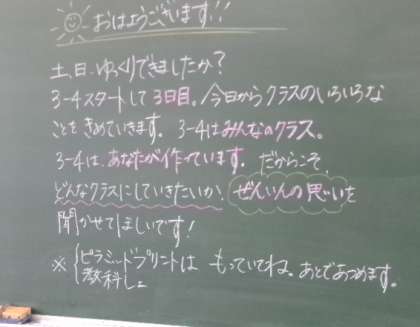 おはようございます!!
土、日、ゆっくりできましたか?
3-4スタートして3日目。今日からクラスのいろいろな
ことをきめていきます。3-4はみんなのクラス。
3-4は、あなたが作っています。だからこそ、
どんなクラスにしていきたいか、ぜんいんの思いを
聞かせてほしいです!
※{ピラミッドプリントは もっていてね。あとであつめます。
教科しょ